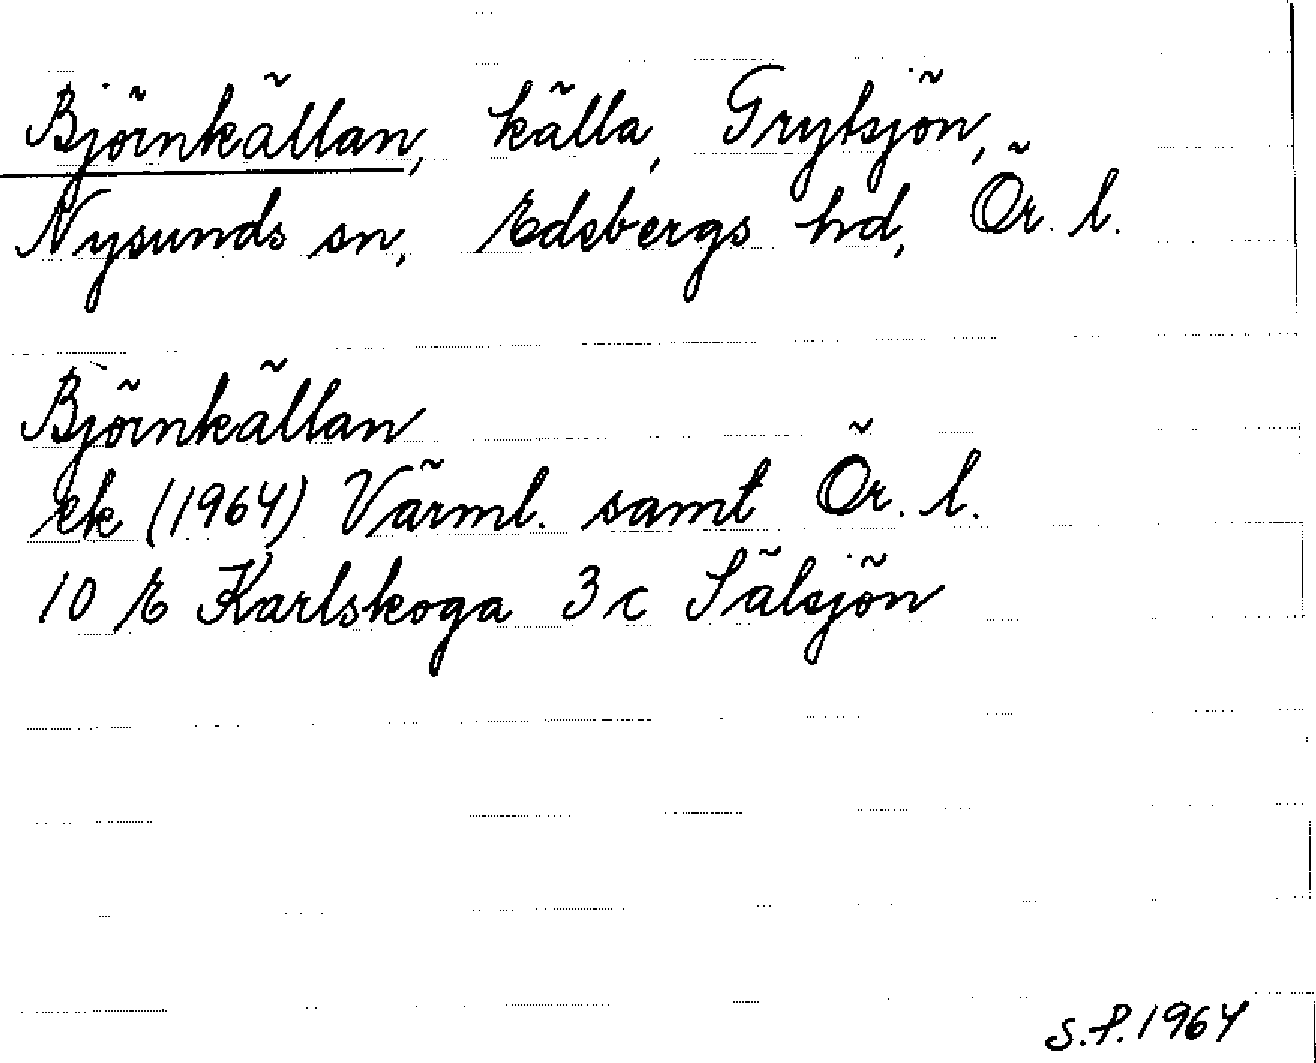 Björnkällan, källa, Grytsjön,
Nysunds sn, Edsbergs hd, Ör. l.
Björnkällan
ek (1964) Värml. samt Ör. l.
10 E Karlskoga 3 c Sälsjön
S.P. 1964